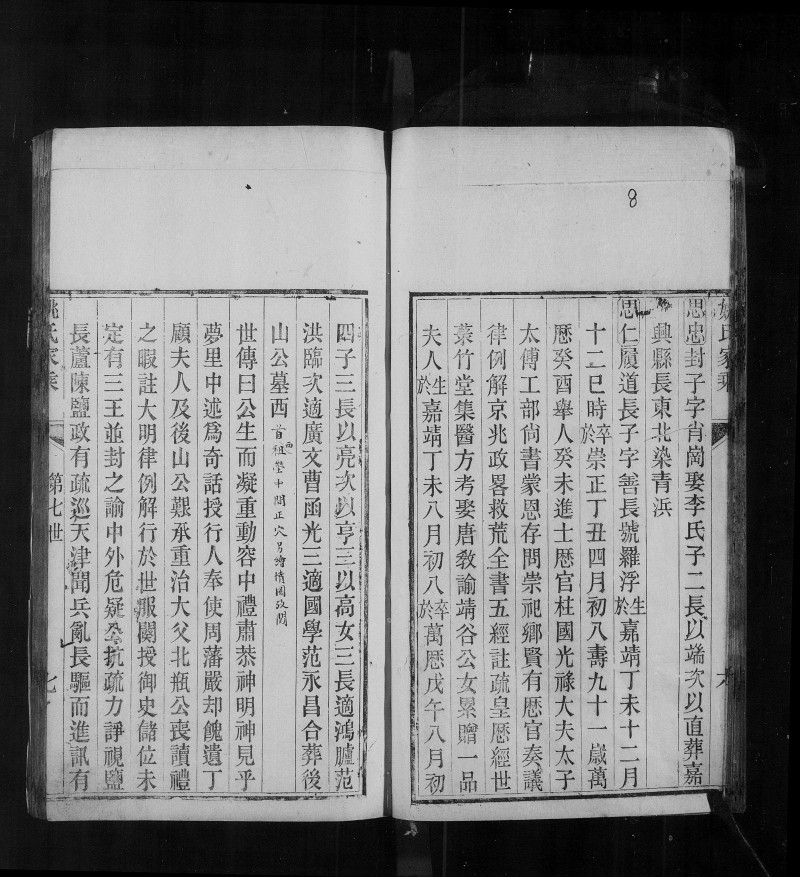 8
姚氏家乘
思忠封子字肖崗娶李氏子二長以端次以直葬嘉
興縣長東北染青浜
思仁履道長子字善長號羅浮生於嘉靖丁未十二月
十二巳時卒於崇正丁丑四月初八壽九十一歲萬
厯癸酉舉人癸未進士歷官柱國光祿大夫太子
太傅工部尚書蒙恩存問崇祀鄉賢有歷官奏議
律例解京兆政畧救荒全書五經註疏皇歷經世
菉竹堂集醫方考娶唐教諭靖谷公女累贈一品
夫人生於嘉靖丁未八月初八卒於萬厯戊午八月初
四子三長以亮次以亨三以高女三長適鴻臚范
洪臨次適廣文曹函光三適國學范永昌合葬後
山公墓西
世傳曰公生而凝重動容中禮肅恭神明神見乎
夢里中述爲奇話授行人奉使周藩嚴却餽遺丁
顧夫人及後山公艱承重治大父北瓶公喪讀禮
之暇註大明律例解行於世服闋授御史儲位未
定有三王並封之諭中外危疑公抗疏力諍視鹽
長蘆陳鹽政有疏巡天津聞兵亂長驅而進訊有
姚氏家乘
第七世
七